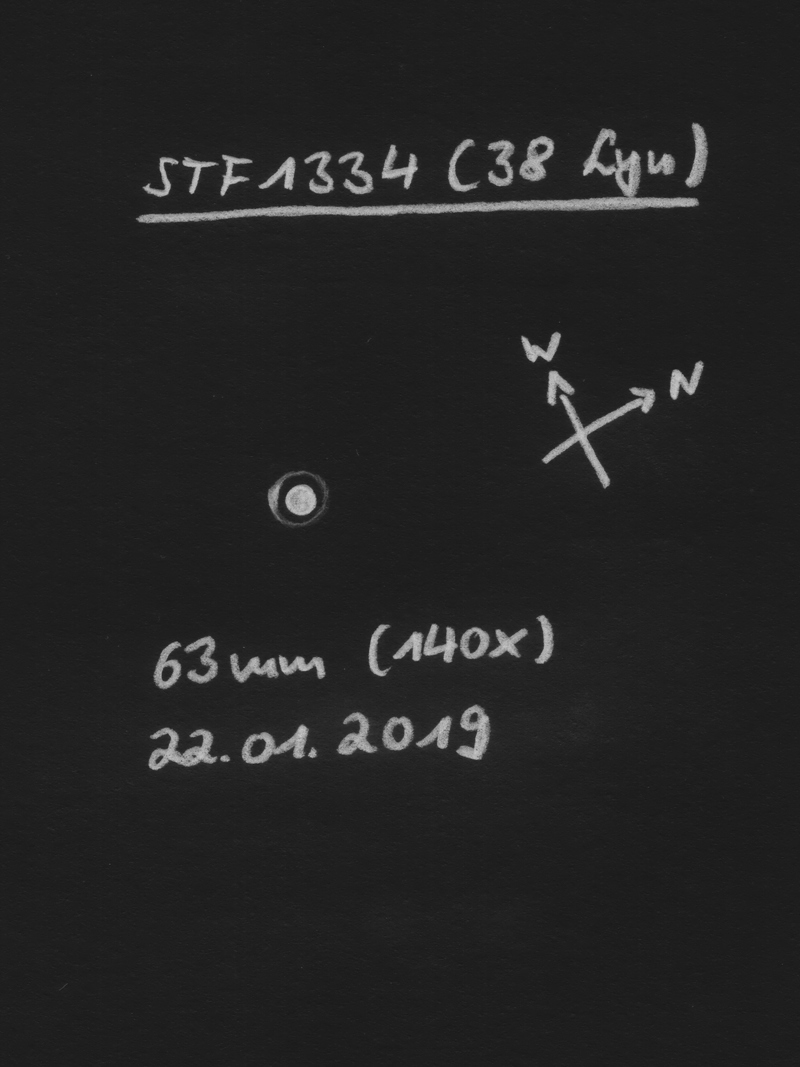 STF1334 (38 Lyn)
W
N
63mm (140x)
22.01.2019